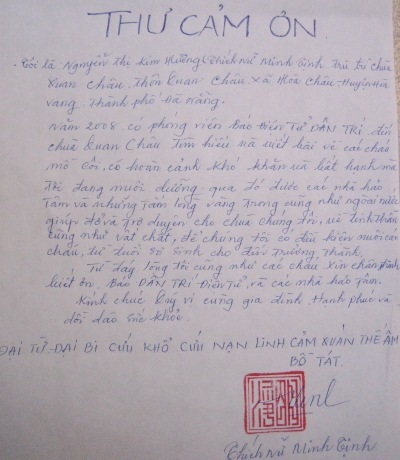 THƯ CẢM ƠN
Tôi là Nguyễn Thị Kim Hường (Thích nữ Minh Tịnh trụ trì chùa
Quan Châu, Thôn Quan Châu, xã Hòa Châu - Huyện Hòa
vang. Thành phố Đà Nẵng.
Năm 2008. có phóng viên Báo Điện Tử DÂN TRÍ đến
chùa Quan Châu tìm hiểu và viết bài về các cháu
mồ côi, có hoàn cảnh khó khăn và bất hạnh mà
Tôi đang nuôi dưỡng. qua đó được các nhà hảo
Tâm và những tấm lòng vàng trong cũng như ngoài nước
giúp đỡ và trợ duyên cho chùa chúng tôi, về tinh thần
cũng như vật chất, để chúng tôi có điều kiện nuôi các
cháu, từ tuổi sơ sinh cho đến trưởng thành.
Từ đáy lòng tôi cũng như các cháu xin chân thành
biết ơn, Báo DÂN TRÍ Điện tử, và các nhà hảo tâm.
Kính chúc quý vị cùng gia đình Hạnh phúc và
dồi dào sức khỏe.
ĐẠI TỪ ĐẠI BI CỨU KHỔ CỨU NẠN LINH CẢM QUÁN THẾ ÂM
BỒ TÁT.
Thích nữ Minh Tịnh